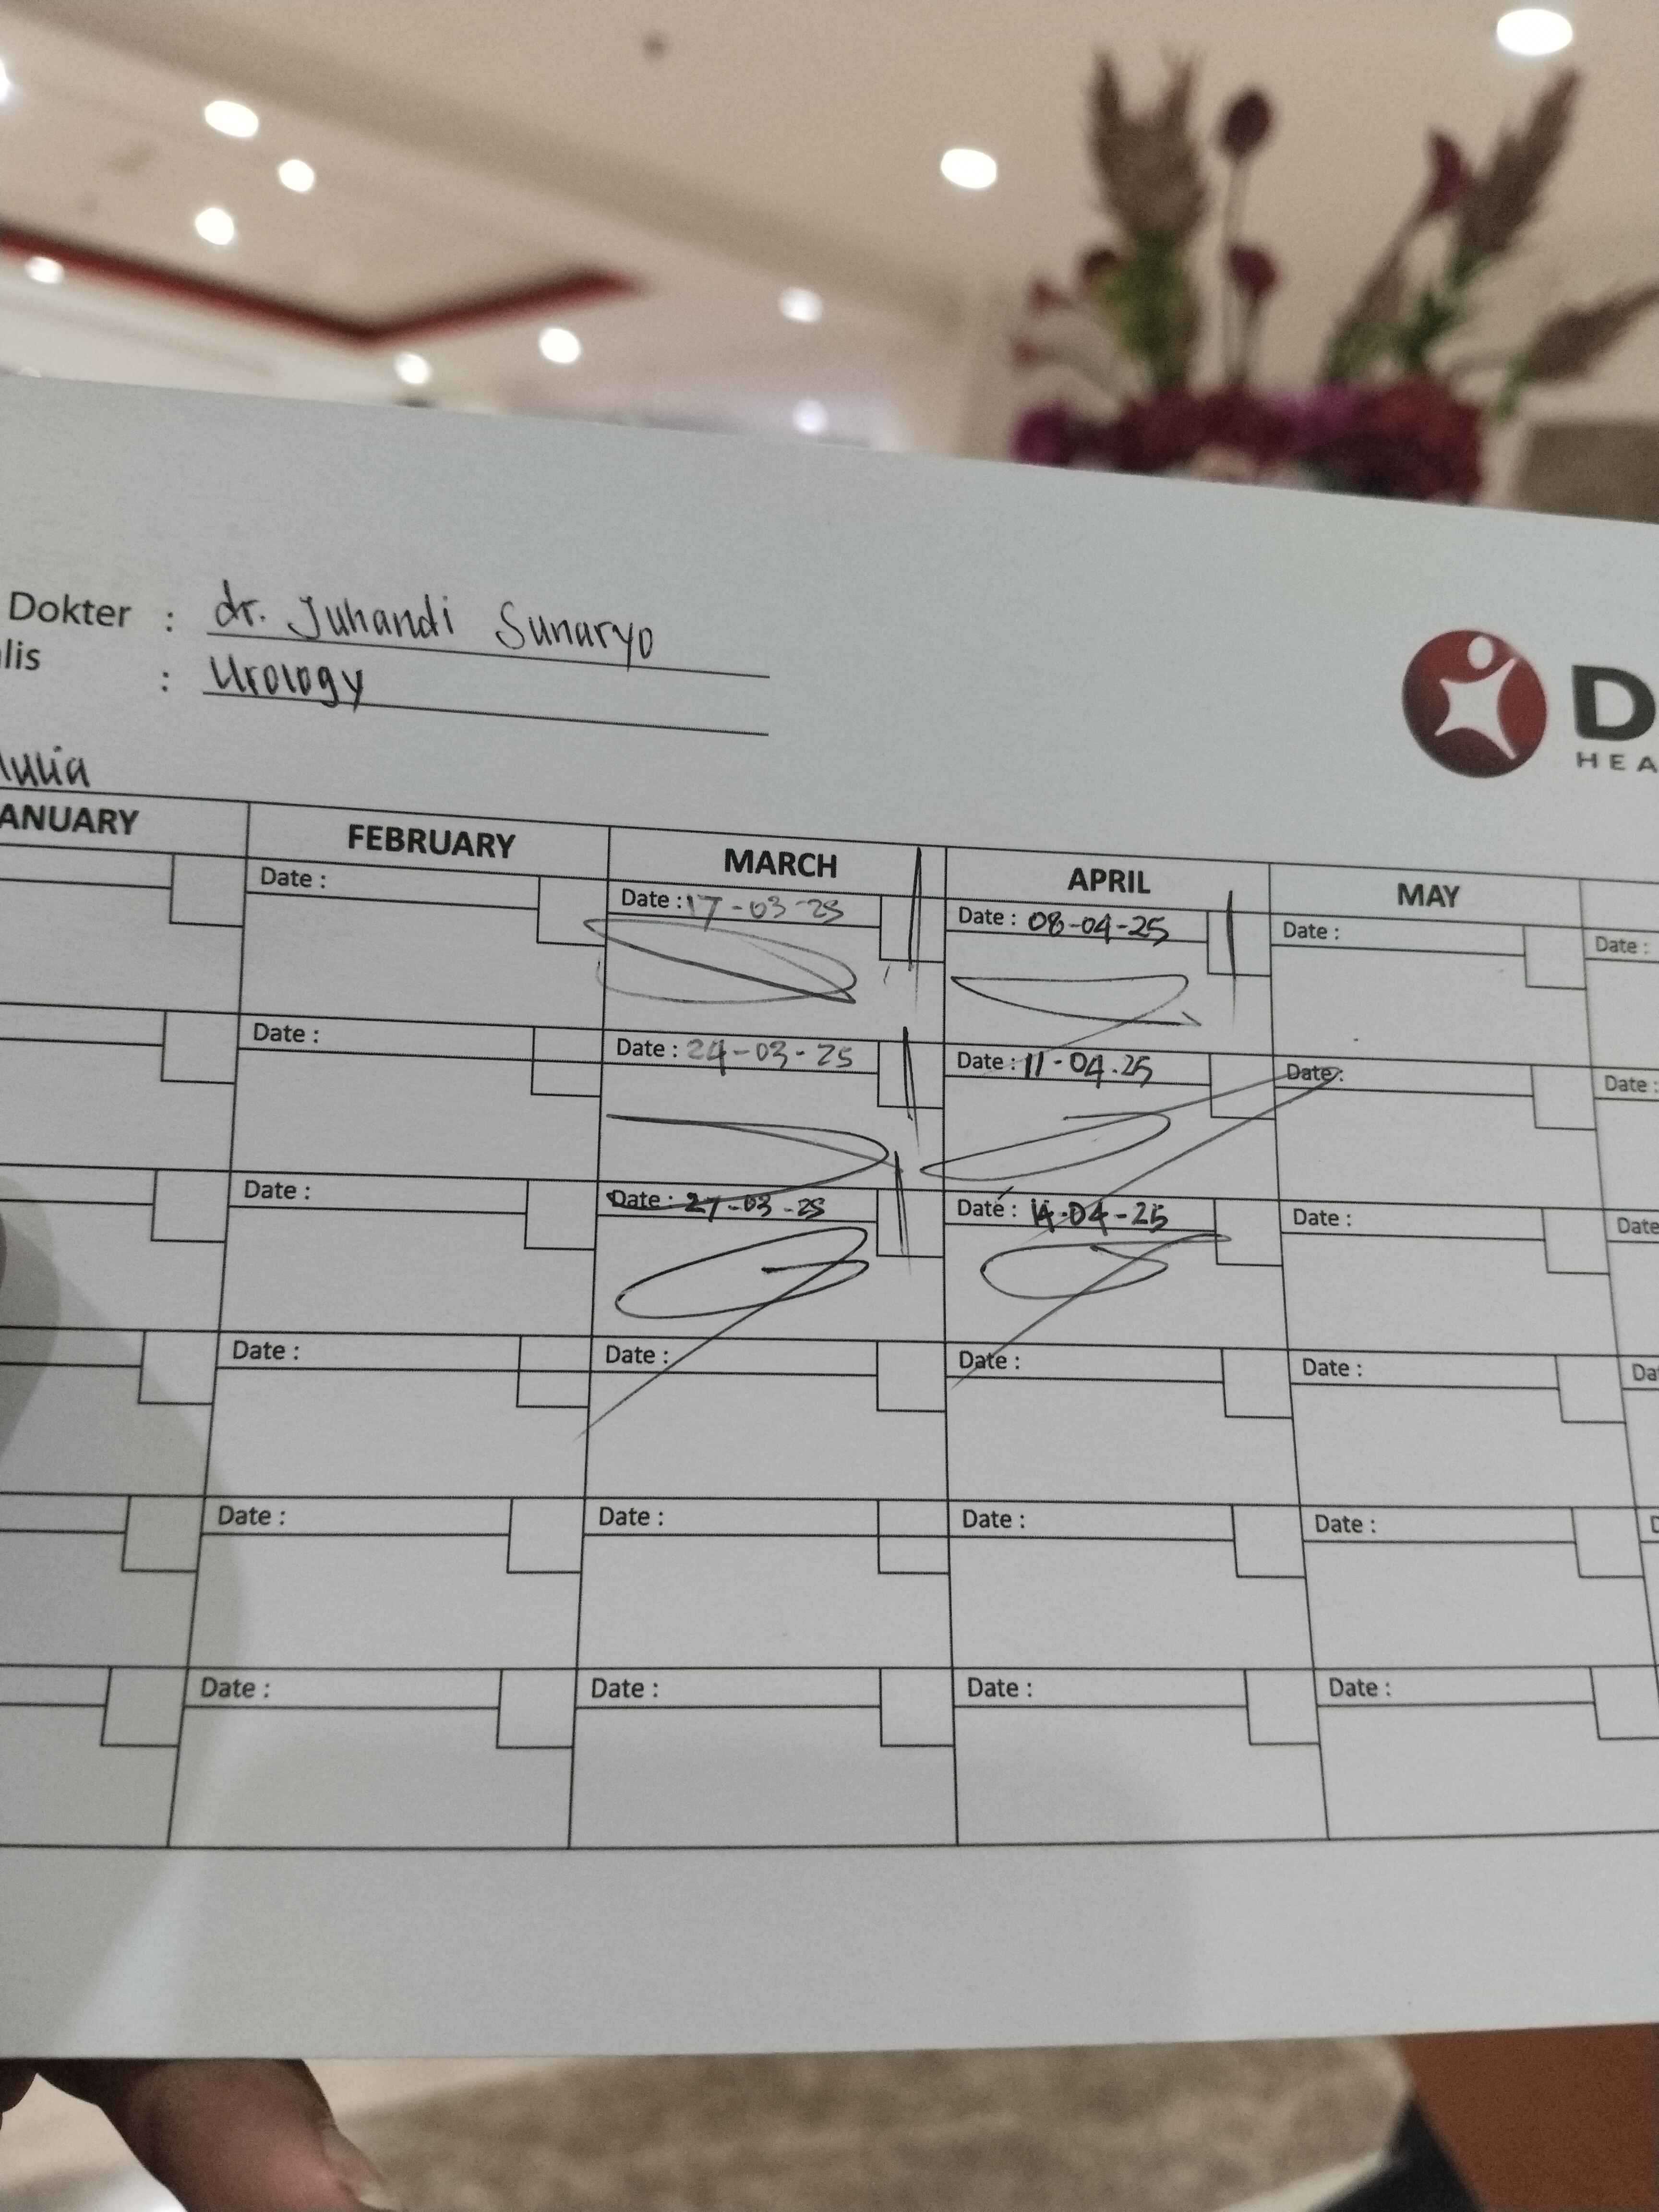 Dokter : dr. Juhandi Sunaryo
lis : Urology
D
HEA
ANUARY FEBRUARY MARCH APRIL MAY
Date : Date : 17-03-25 Date : 08-04-25 Date : Date :
Date : Date : 24-03-25 Date : 11-04.25 Date : Date :
Date : Date : 27-03-25 Date : 14-04-25 Date : Date
Date : Date : Date : Date : Da
Date : Date : Date : Date : D
Date : Date : Date : Date :